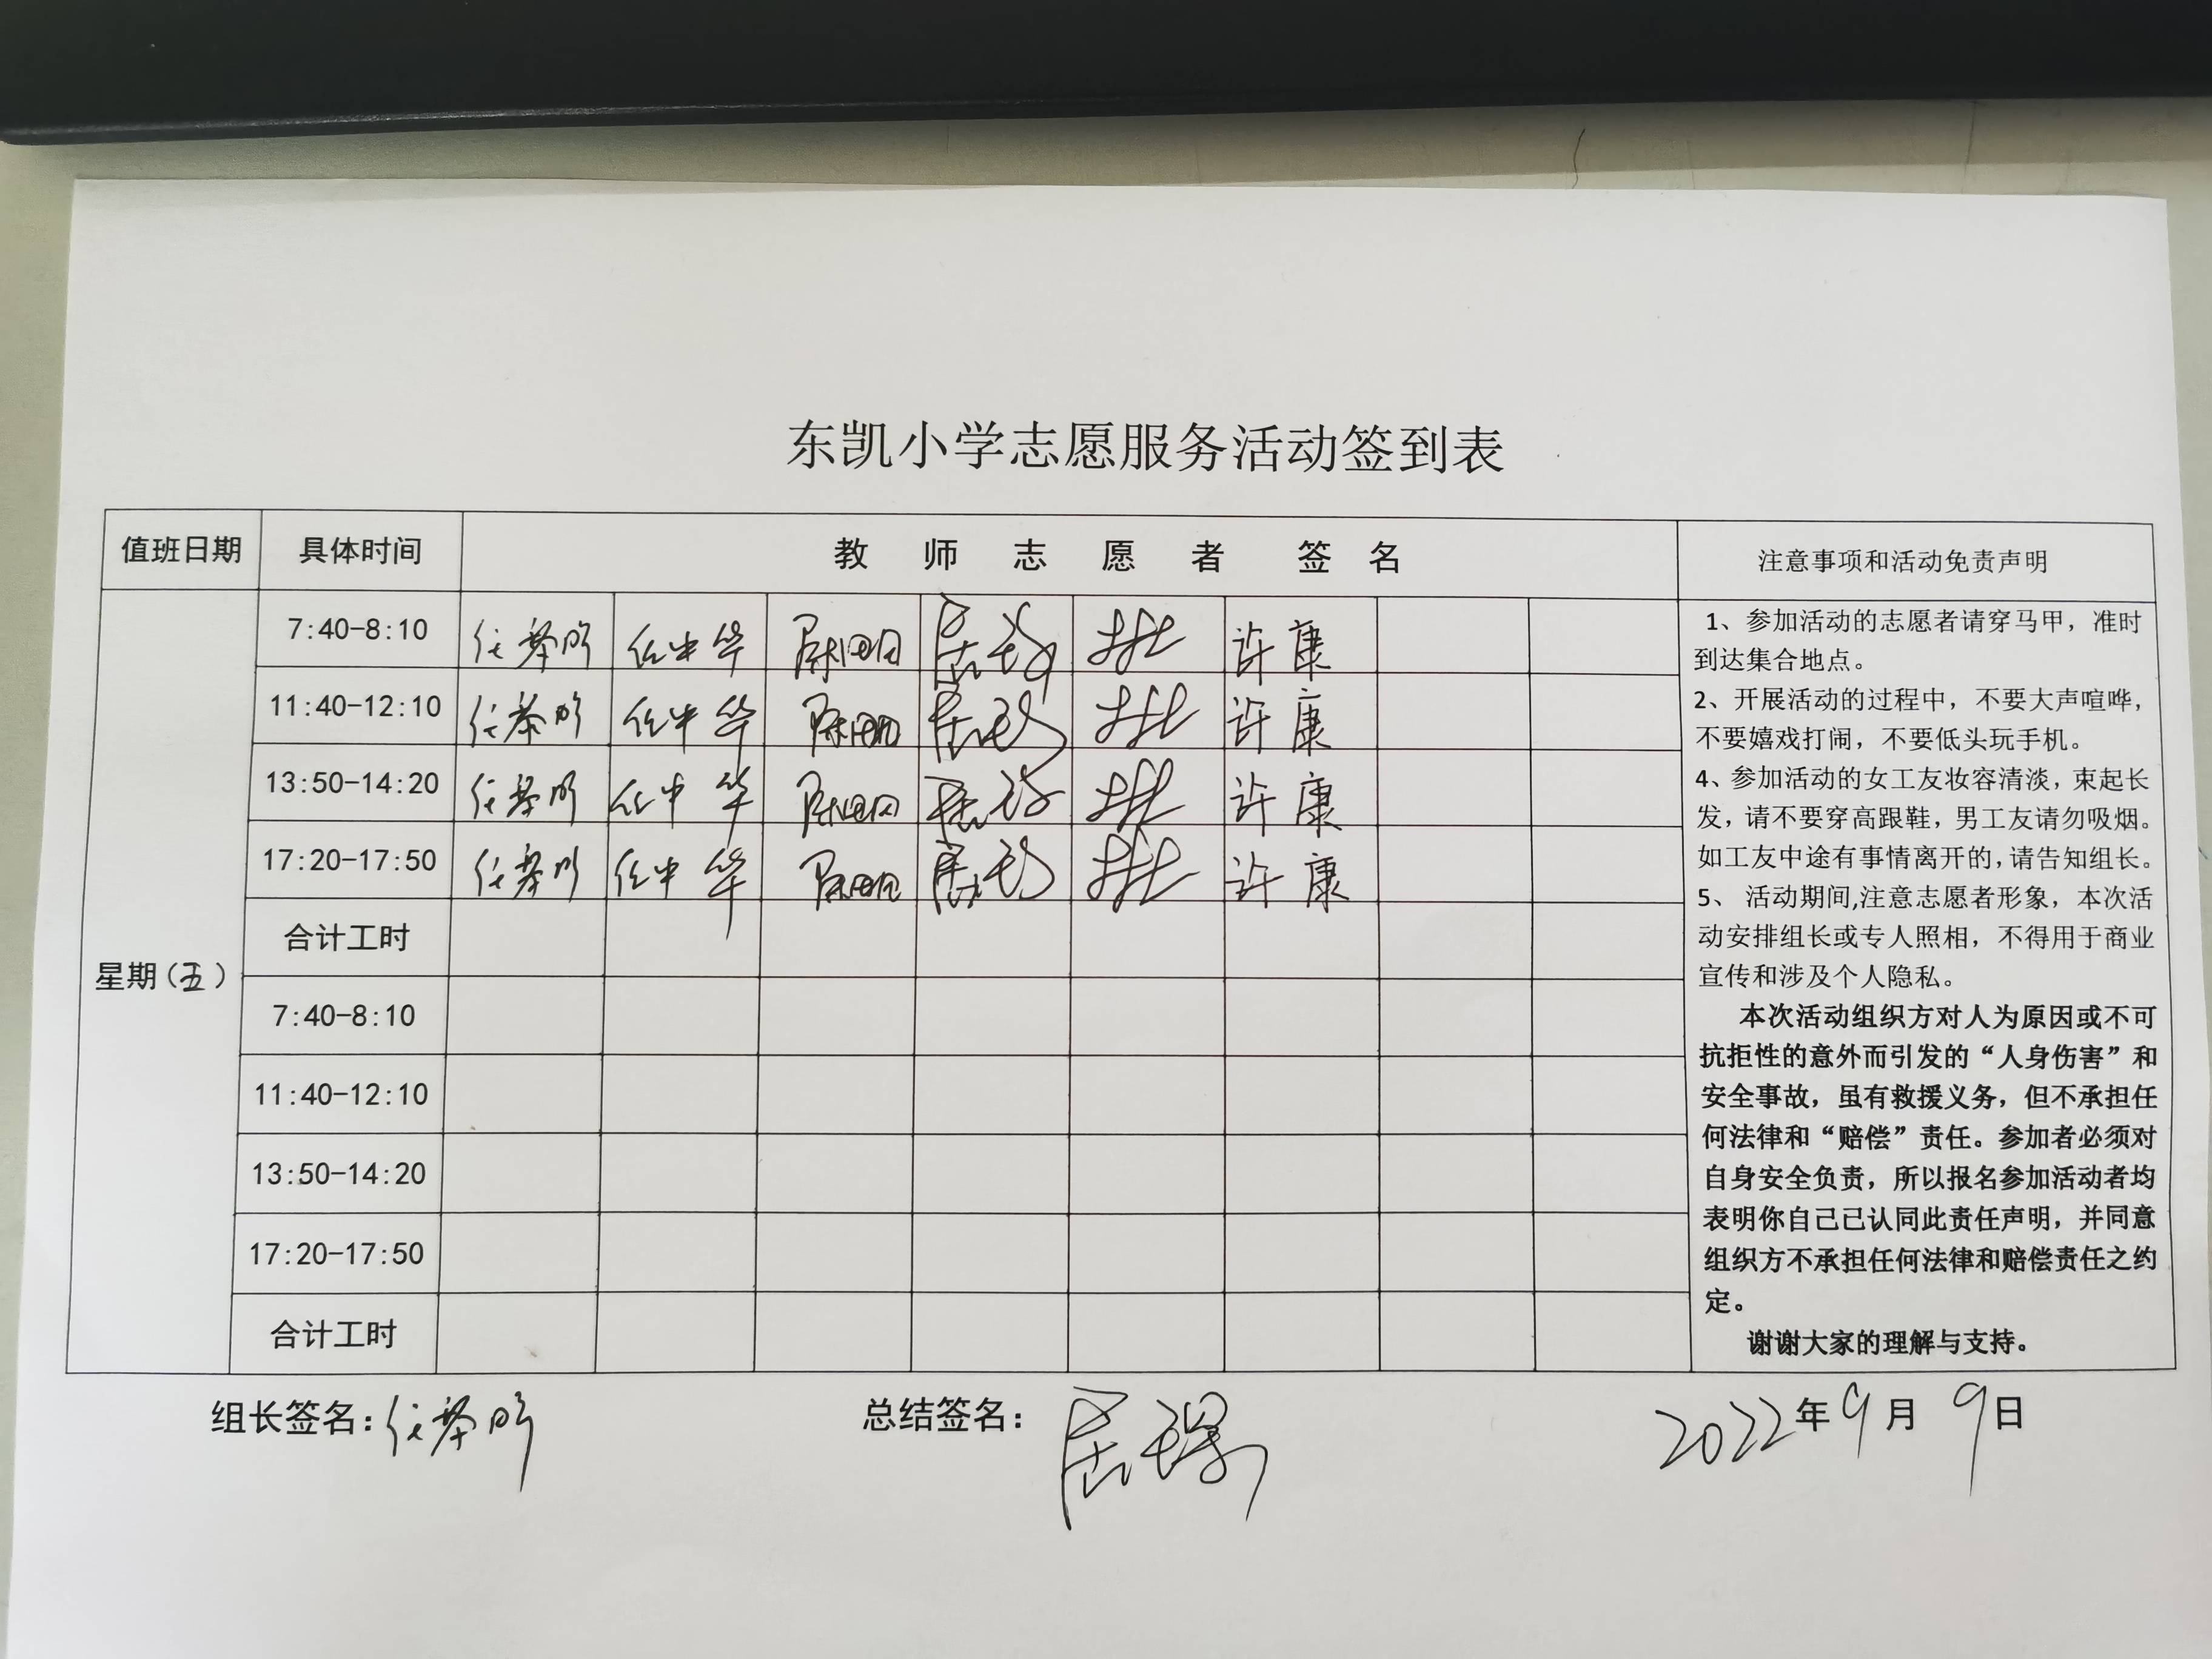 东凯小学志愿服务活动签到表
值班日期 具体时间 教师志愿者签名 注意事项和活动免责声明
星期（五）
7:40-8:10 任中华 许康
11:40-12:10 任中华 许康
13:50-14:20 任中华 许康
17:20-17:50 任中华 许康
合计工时
7:40-8:10
11:40-12:10
13:50-14:20
17:20-17:50
合计工时
1、参加活动的志愿者请穿马甲，准时
到达集合地点。
2、开展活动的过程中，不要大声喧哗，
不要嬉戏打闹，不要低头玩手机。
4、参加活动的女工友妆容清淡，束起长
发，请不要穿高跟鞋，男工友请勿吸烟。
如工友中途有事情离开的，请告知组长。
5、 活动期间,注意志愿者形象，本次活
动安排组长或专人照相，不得用于商业
宣传和涉及个人隐私。
本次活动组织方对人为原因或不可
抗拒性的意外而引发的“人身伤害”和
安全事故，虽有救援义务，但不承担任
何法律和“赔偿”责任。参加者必须对
自身安全负责，所以报名参加活动者均
表明你自己已认同此责任声明，并同意
组织方不承担任何法律和赔偿责任之约
定。
谢谢大家的理解与支持。
组长签名： 总结签名： 2022年9月9日